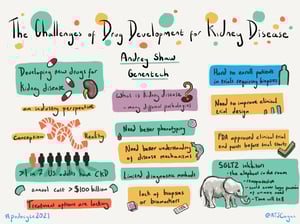 The Challenges of Drug Development for Kidney Disease
Andrey Shaw
Genentech
Developing new drugs for
Kidney disease
an industry perspective
Conception
Reality
>1 in 7 US adults have CKD
annual cost >$100 billion
Treatment options are lacking
What is Kidney disease
many different pathologies
Need better phenotyping
Need better understanding
of disease mechanisms
Limited diagnostic methods
lack of biopsies
or biomarkers
Hard to enroll patients
in trials requiring biopsies
Need to improve clinical
trial design
FDA approved clinical trial
end points before trial starts
SGLT2 inhibitors
- the elephant in the room
- Time will tell